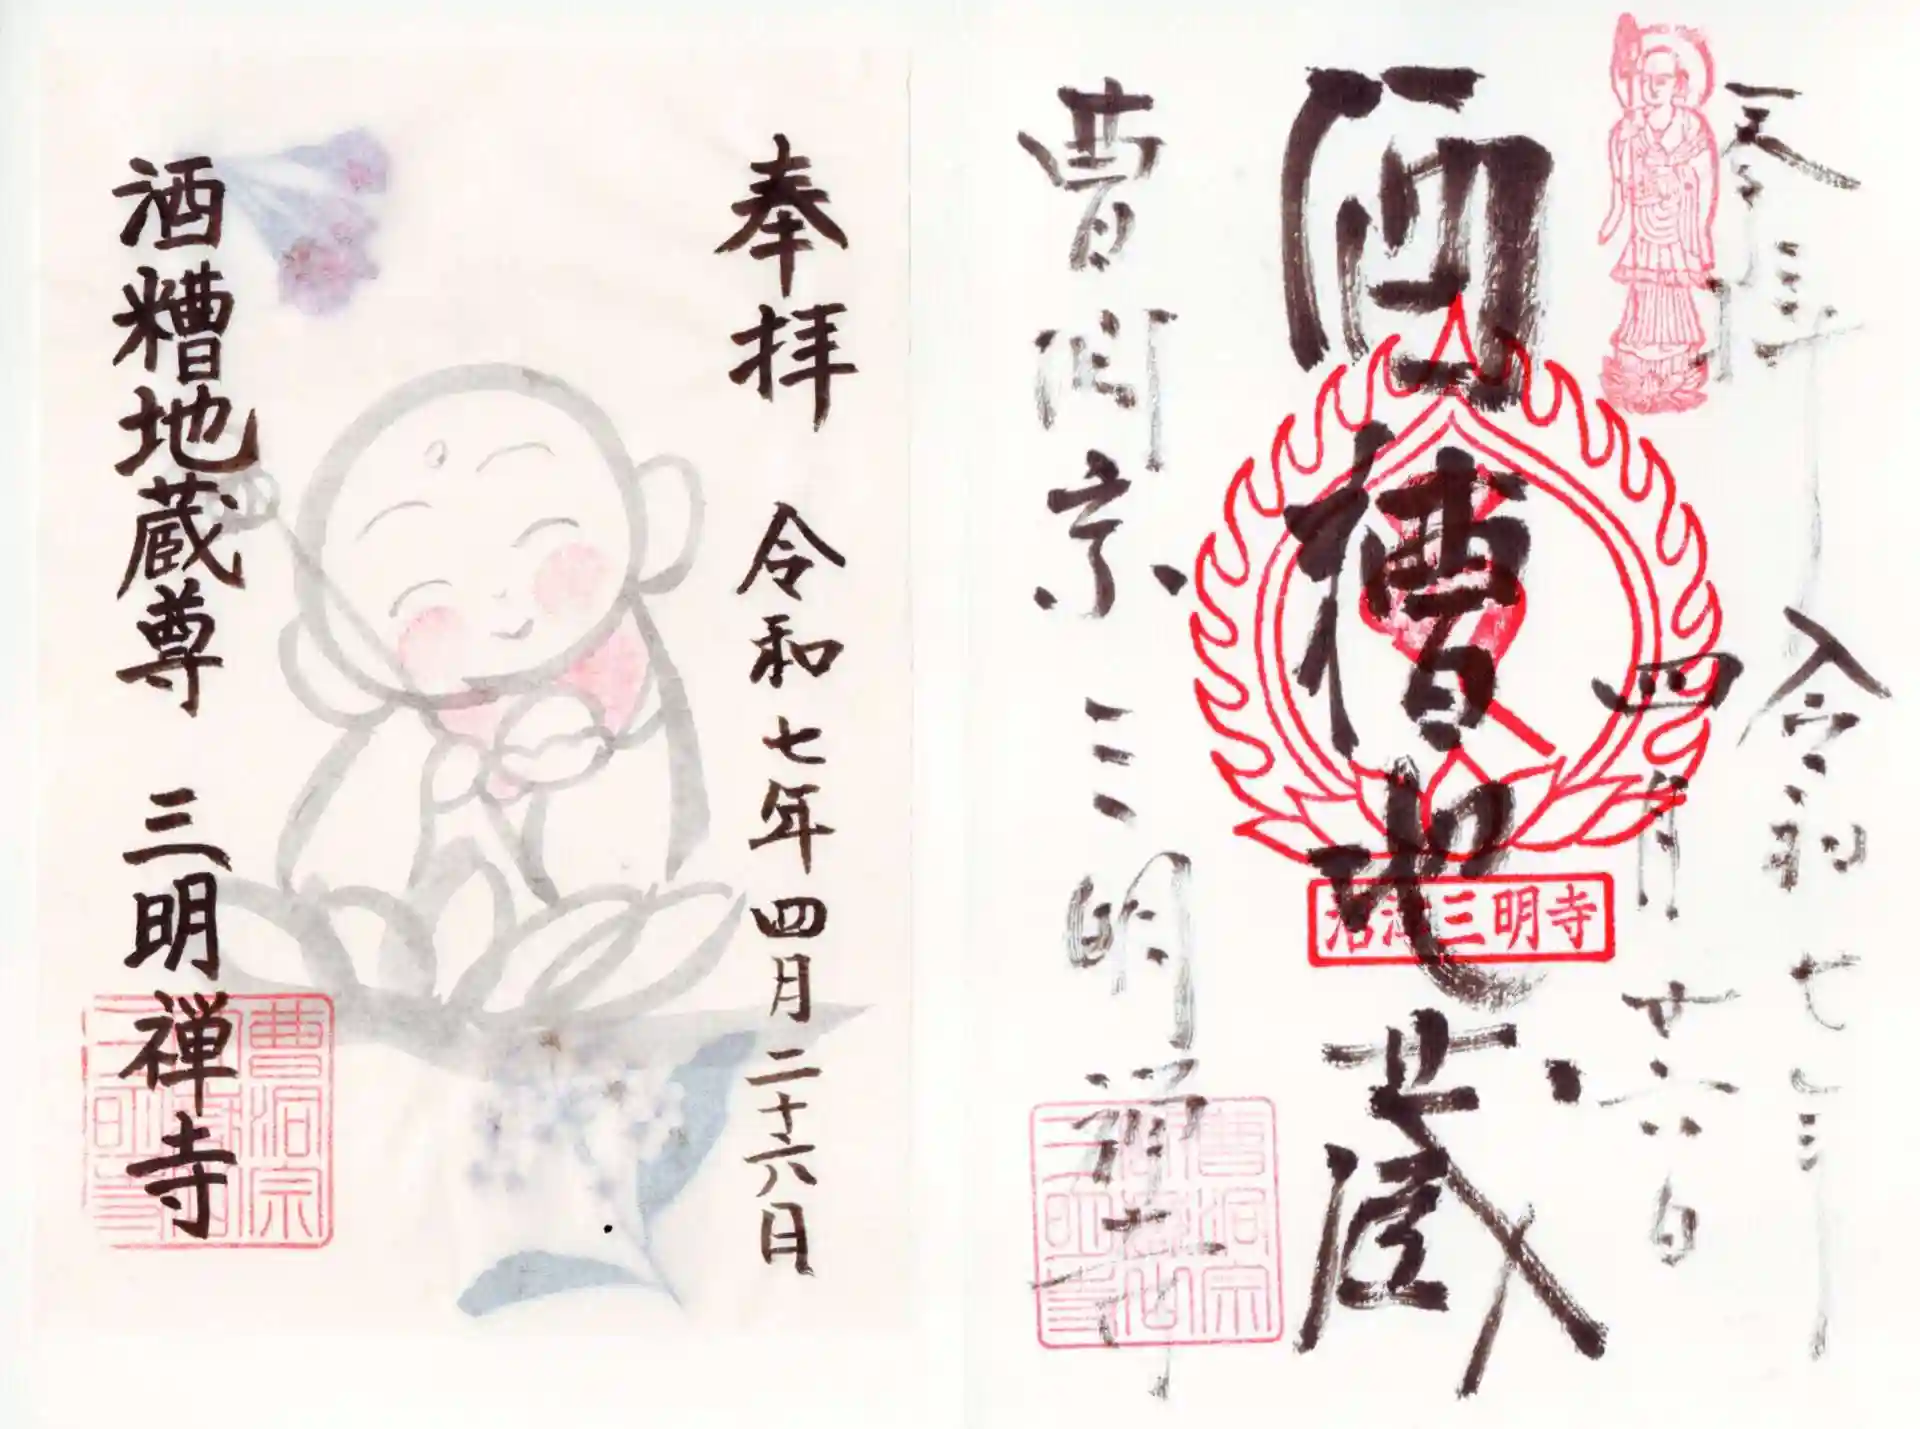 奉拝 令和七年四月二十六日
酒糟地蔵尊 三明禅寺
曹洞宗
三明寺
奉拝 令和七年
四月廿六日
酒糟地蔵
沼津三明寺
曹洞宗 三明禅寺
曹洞宗